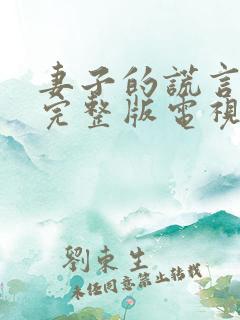 妻子的謊言
完整版電視
劉東生
未经同意禁止转载